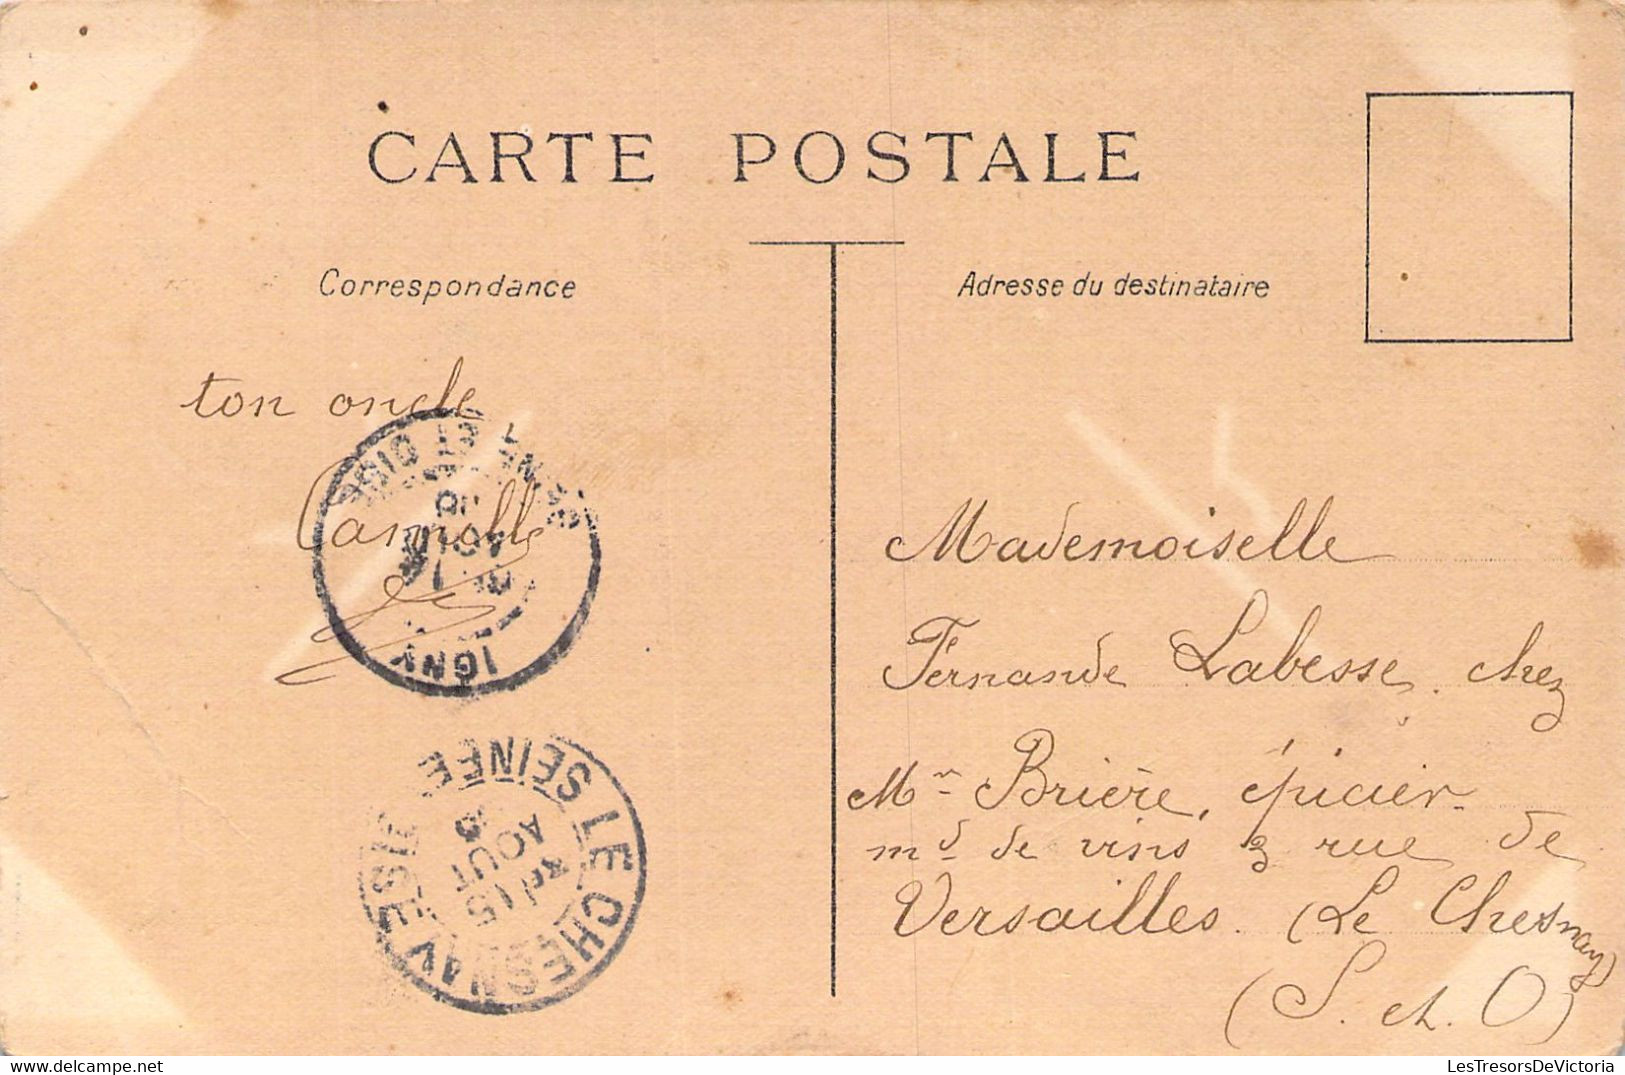 CARTE POSTALE
Correspondance
ton oncle
Camille
SEINE ET OISE
18
IGNY
LE CHESNAY
SEINE ET OISE
15
AOUT
Adresse du destinataire
Mademoiselle
Fernande Labesse chez
Mr Brière, épicier
md de vins 3 rue de
Versailles. (Le Chesnay)
(S. et. O)
LesTresorsDeVictoria